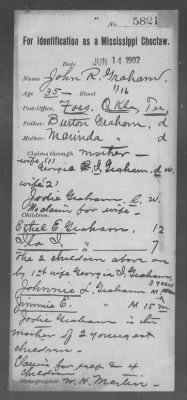 No. 5821
For Identification as a Mississippi Choctaw.
Date JUN 14 1902
Name John R. Graham.
Age 35 - Blood 1/16
Post-Office, Foss, Okla, Ter,
Father, Burton Graham, d
Mother, Marinda " d
Claims through mother -
wife (1)
Georgia E. I. Graham, d. w.
wife 2)
Jodie Graham I. W.
No claim for wife -
Children:
Ethel E. Graham, 12
Ila I. " 7
The 2 children above are
by 1st wife Georgia I. Graham,
Johnnie L. Graham M 3 years
Jimmie E. " M 15 m
Jodie Graham is the
mother of 2 youngest
children -
Claims for self & 4
children
Stenographer W. H. Martin.